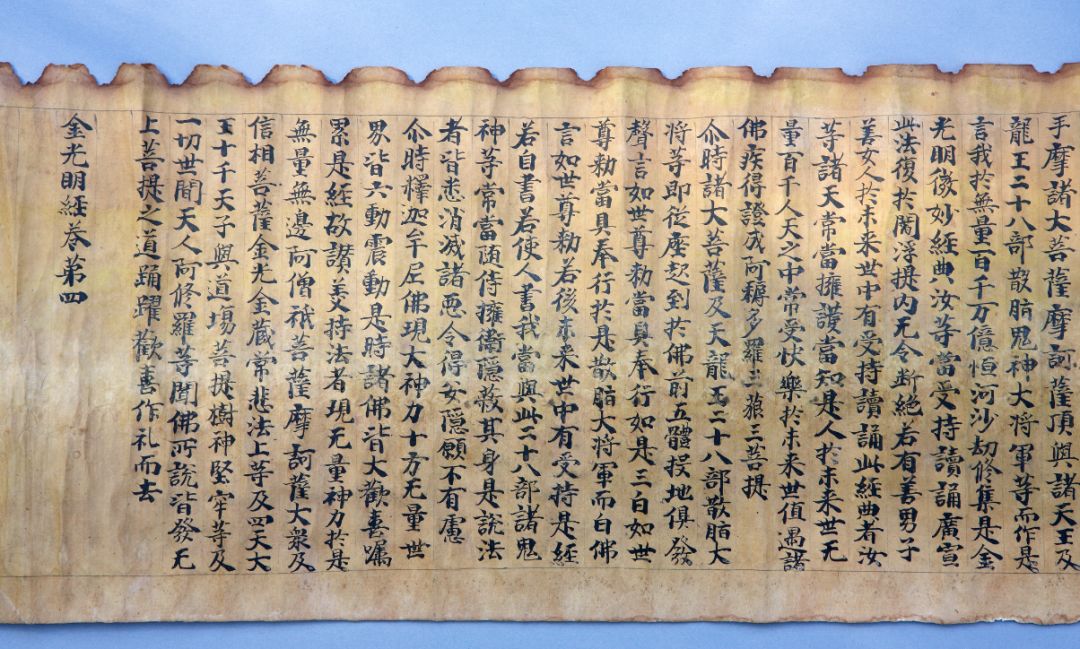 手摩諸大菩薩摩訶薩頂與諸天王及
龍王二十八部散脂鬼神大将軍等而作是
言我於無量百千万億恒河沙劫修集是金
光明微妙經典汝等當受持讀誦廣宣
此法復於閻浮提内无令断絶若有善男子
善女人於未来世中有受持讀誦此經典者汝
等諸天常當擁護當知是人於未来世无
量百千人天之中常受快樂於未来世值遇諸
佛疾得證成阿耨多羅三藐三菩提
尒時諸大菩薩及天龍王二十八部散脂大
将等即從座起到於佛前五體投地俱發
聲言如世尊勑當具奉行如是三白如世
尊勑當具奉行於是散脂大将軍而白佛
言如世尊勑若後未来世中有受持是經
若自書若使人書我當與此二十八部諸鬼
神等常當随侍擁衛隠蔽其身是説法
者皆悉消滅諸惡令得安隠願不有慮
尒時釋迦牟尼佛現大神力十方无量世
界皆六動震動是時諸佛皆大歡喜囑
累是經故讃美持法者現无量神力於是
無量無邊阿僧祇菩薩摩訶薩大衆及
信相菩薩金光金蔵常悲法上等及四天大
王十千天子與道場菩提樹神堅牢等及
一切世間天人阿修羅等聞佛所説皆發无
上菩提之道踊躍歡喜作礼而去
金光明經卷第四